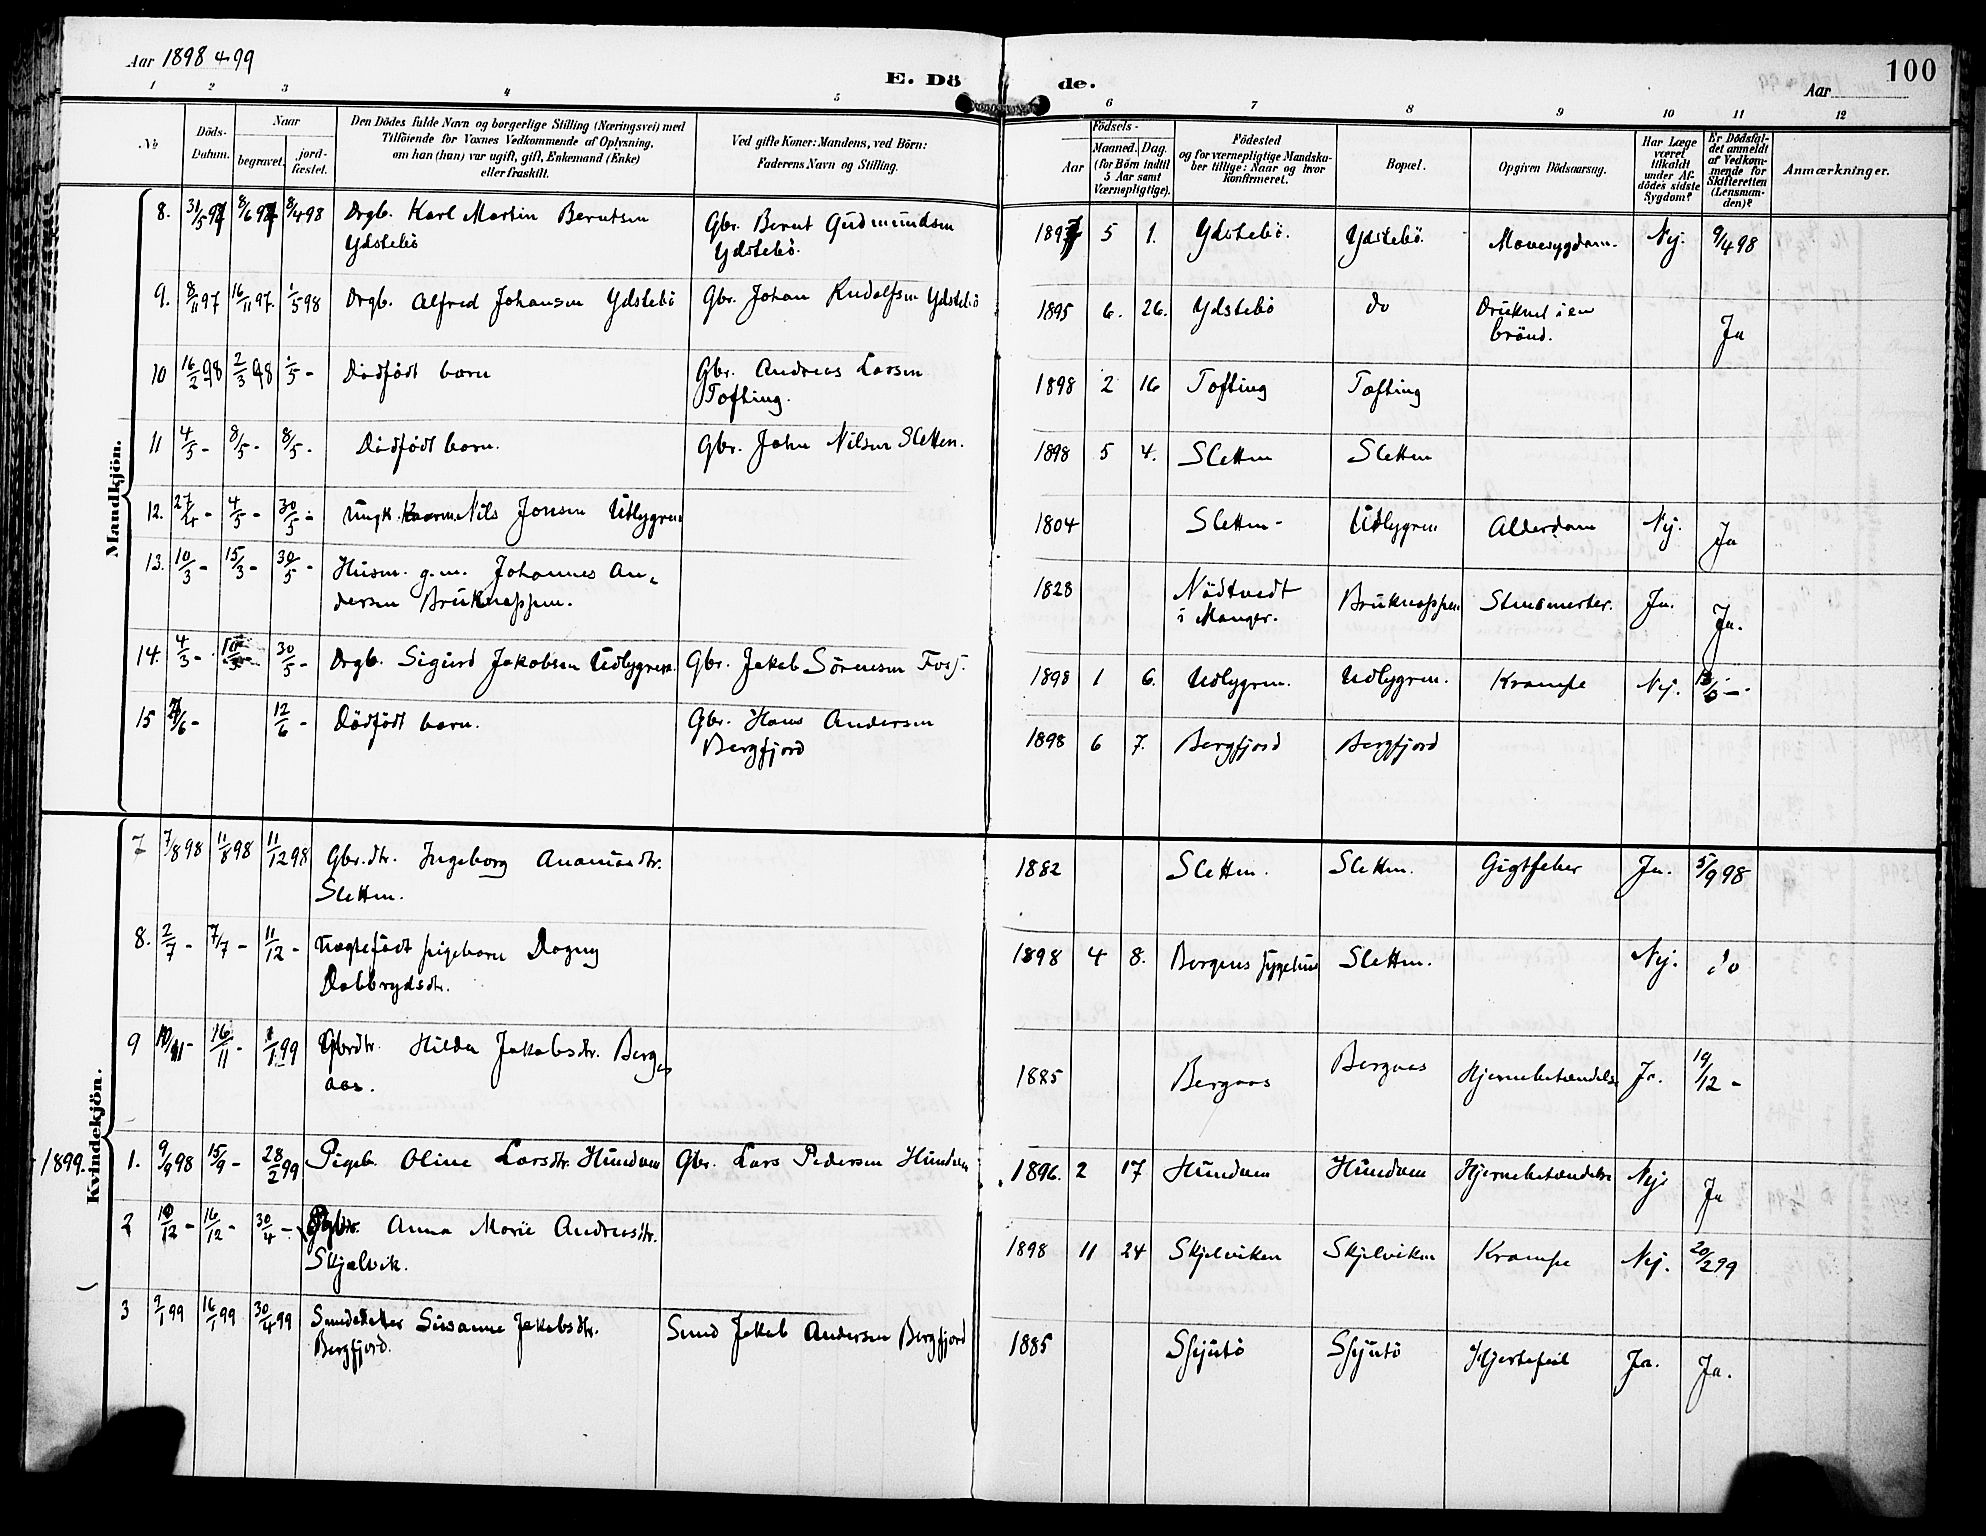 Aar 1898 & 99
E. Dö de.
Aar
100
1 2 3 4 5 6 7 8 9 10 11 12
№
Döds-
Datum.
Naar
begravet.
jord-
fæstet.
Den Dödes fulde Navn og borgerlige Stilling (Næringsvei) med
Tilföiende for Voxnes Vedkommende af Oplysning,
om han (hun) var ugift, gift, Enkemand (Enke)
eller fraskilt.
Ved gifte Koner: Mandens, ved Börn:
Faderens Navn og Stilling.
Födsels-
Aar
Maaned. Dag.
(for Börn indtil
5 Aar samt
Værnepligtige).
Födested
og for værnepligtige Mandska-
ber tillige: Naar og hvor
konfirmeret.
Bopæl.
Opgiven Dödsaarsag.
Har Læge
været
tilkaldt
under Af-
dödes sidste
Sygdom?
Er Dödsfal-
det anmeldt
af Vedkom-
mende for
Skifteretten
(Lensman-
den)?
Anmærkninger.
Mandkjön.
8. 31/5 97 8/6 97 8/4 98 Drgb. Karl Martin Berntsen
Ydstebö
Gbr. Bernt Gudmundsen
Ydstebö.
1897 5 1. Ydstebö. Ydstebö. Mavesygdom. Nej. 9/4 98
9. 8/11 97 16/11 97. 1/5 98 Drgb. Alfred Johansen Ydstebö Gbr. Johan Rudolfsen Ydstebö
1895 6. 26. Ydstebö do Druknet i en
brönd.
Ja
10 16/2 98 2/3 98 1/5 - Dödfödt barn Gbr. Andreas Larsen
Tofting.
1898 2 16 Tofting Tofting
11 4/5 - 8/5 - 8/5 - Dödfödt barn. Gbr. John Nilsen Sletten.
1898 5 4. Sletten Sletten
12. 4/5 - 30/5 - Ungk. Nils Jonsen Udlygren
1804 Sletten - Udlygren Alderdom Nej. Ja
13. 10/3 - 15/3 - 30/5 - Husm. g.m. Johannes An-
dersen Bruknappen.
1828 Nödtvedt
i Manger.
Bruknappen Stensmerter. Ja. Ja.
14. 4/3 - 30/5 - Drgb. Sigurd Jakobsen Udlygren. Gbr. Jakob Sörensen
1898 1 6. Udlygren. Udlygren. Krampe Nej.
15 7/6 - 12/6 - Dödfödt barn. Gbr. Hans Andersen
Bergfjord
1898 6 7. Bergfjord Bergfjord
Kvindekjön.
7 7/8 98 11/8 98 11/12 98 Gbr.dtr. Ingeborg Ananiasdtr.
Sletten.
1882 Sletten. Sletten. Gigtfeber Ja. 5/9 98
8. 2/7 - 7/7 - 11/12 - Uægtefödt pigebarn Dagny
Dabbrydsdtr.
1898 4 8. Bergens sygehus Sletten. Nej. do
9 10/11 - 16/11 - 1/1 99 Gbrdtr. Hilda Jakobsdtr. Berg-
aas.
1885 Bergaas Bergaas Hjernebetændelse Ja. 19/12 -
1899. 1. 9/9 98 15/9 - 28/2 99 Pigeb. Oline Larsdtr. Hundven Gbr. Lars Pedersen Hundven
1896. 2 17 Hundven Hundven Hjernebetændelse Nej. Ja
2 10/12 - 16/12 - 30/4 - Anna Marie Andreasdtr.
Skjelvik.
1898 11 24 Skjelviken Skjelviken Krampe Nej. 20/2 99
3 9/1 99 16/1 99 30/4 99 Smededatter Susanne Jakobsdtr.
Bergfjord.
Smed Jakob Andersen Bergfjord
1885 Skjutö Skjutö Hjertefeil Ja. Ja.